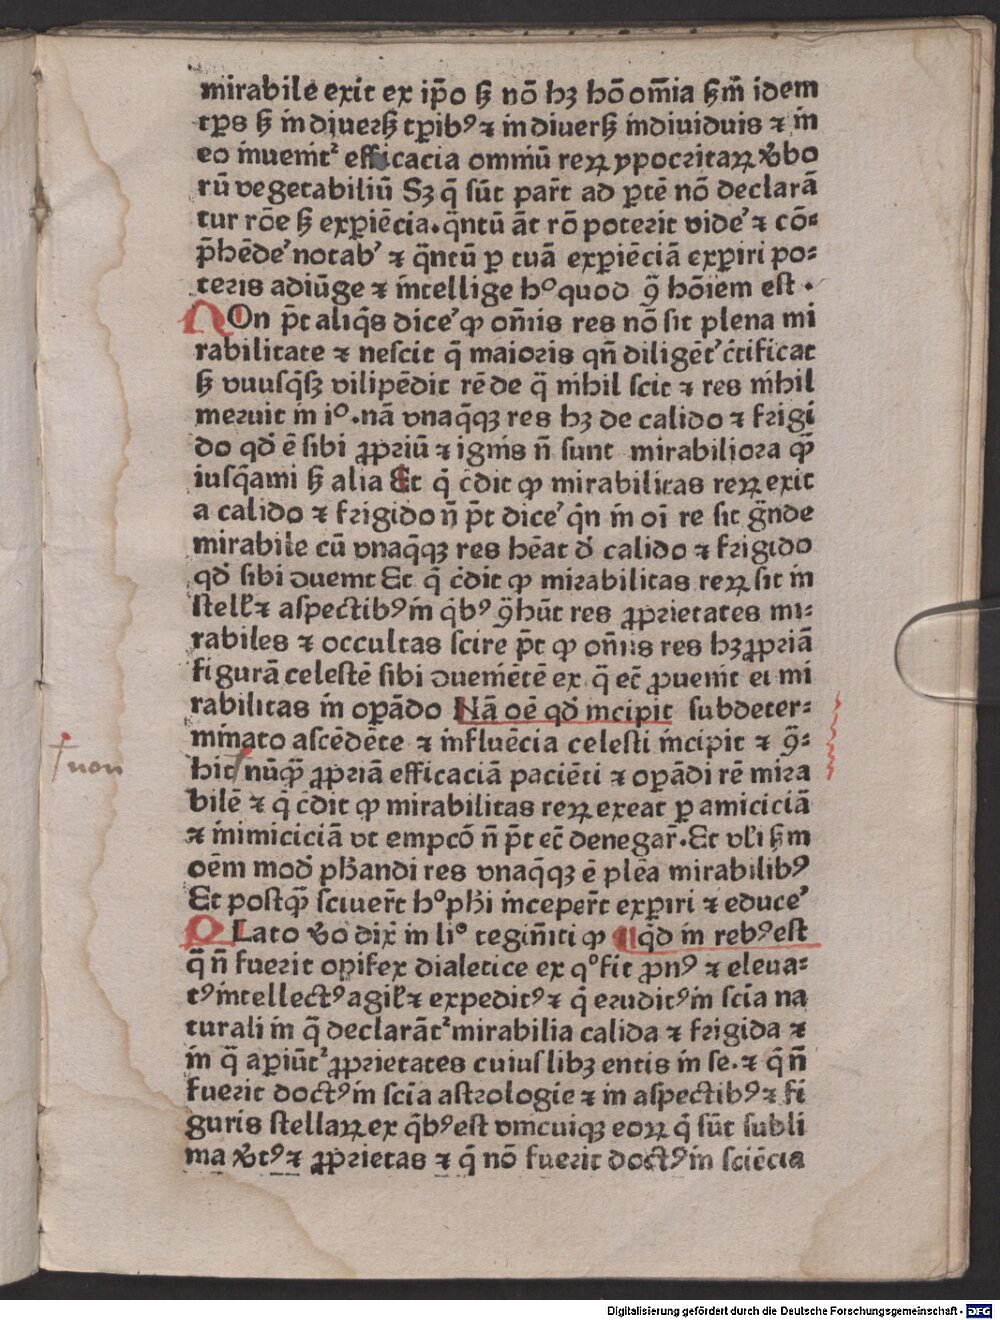 mirabile exit ex ip̄o ẜ nō hꝫ hō om̄ia ẜm̄ idem
tꝑs ẜ in diuerẜ tꝑibꝰ ⁊ in diuerẜ indiuiduis ⁊ in
eo inuenit᷑ efficacia omniū reꝝ ypocritaꝝ v̓bo
rū vegetabiliū Sꝫ q̄ sūt par̄t ad ꝑtē nō declarā
tur rōe ẜ exꝑiēcia. q̄ntū āt rō poterit vide᷑ ⁊ cō⸗
p̄hēde᷑ notab᷑ ⁊ q̄ntū ꝑ tuā exꝑiēciā exꝑiri po⸗
teris adiūge ⁊ intellige hº quod ꝯ̄ hōiem est .
NOn p̄t aliq̄s dice᷑ ꝙ om̄is res nō sit plena mi
rabilitate ⁊ nescit q̄ maioris qn̄ diligēt᷑ c̄tificat
ẜ vnusq̄sꝫ vilipēdit rē de q̄ nihil scit ⁊ res nihil
meruit in iº . nā vnaq̄qꝫ res hꝫ de calido ⁊ frigi
do qđ ē sibi ꝓpriū ⁊ ignis n̄ sunt mirabiliora ꝙ̄
iusq̄ami ẜ alia Et q̄ c̄dit ꝙ mirabilitas reꝝ exit
a calido ⁊ frigido n̄ p̄t dice᷑ q̄n in oī re sit ḡnde
mirabile cū vnaq̄qꝫ res hēat đ calido ⁊ frigido
qđ sibi ꝯuenit Et q̄ c̄dit ꝙ mirabilitas reꝝ sit in
stell̓ ⁊ aspectibꝰ in q̄bꝰ ꝯ̄hūt res ꝓprietates mi⸗
rabiles ⁊ occultas scire p̄t ꝙ om̄is res hꝫ ꝓpriā
figurā celestē sibi ꝯueniētē ex q̄ ec̄ ꝓuenit ei mi
rabilitas in oꝑādo Nā oē qđ incipit subdeter⸗
minato ascēdēte ⁊ influēcia celesti incipit ⁊ ꝯ̄⸗
hit nūꝙ̄ ꝓpriā efficaciā paciēti ⁊ oꝑādi rē mira
bilē ⁊ q̄ c̄dit ꝙ mirabilitas reꝝ exeat ꝑ amiciciā
⁊ inimiciciā vt empcō n̄ p̄t ec̄ denegar̄. Et vl̓i ẜm
oēm mođ pħandi res vnaq̄qꝫ ē plēa mirabilibꝰ
Et postꝙ̄ sciuer̄t hº pħi inceper̄t exꝑiri ⁊ educe᷑
PLato v̓o dix̄ in liº tegim̄iti ꝙ q̄d in rebꝰ est
q̄ n̄ fuerit opifex dialetice ex qº fit ꝓnꝰ ⁊ eleua⸗
tꝰ intellectꝰ agil̓ ⁊ expeditꝰ ⁊ q̄ eruditꝰ in scīa na
turali in q̄ declarāt᷑ mirabilia calida ⁊ frigida ⁊
in q̄ aꝑiūt᷑ ꝓprietates cuiuslibꝫ entis in se. ⁊ q̄ n̄
fuerit doctꝰ in scīa astrologie ⁊ in aspectibꝰ ⁊ fi
guris stellaꝝ ex q̄bꝰ est vnicuiqꝫ eoꝝ q̄ sūt subli
ma v̓tꝰ ⁊ ꝓprietas ⁊ q̄ nō fuerit doctꝰ in sciēcia
non
Digitalisierung gefördert durch die Deutsche Forschungsgemeinschaft - DFG